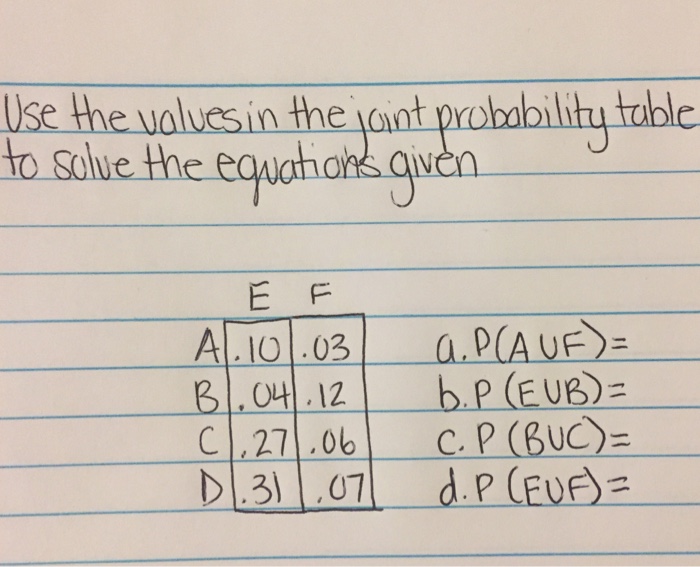 Use the values in the joint probability table
to solve the equations given
E F
A .10 .03 a. P(A∪F)=
B .04 .12 b. P(E∪B)=
C .27 .06 c. P(B∪C)=
D .31 .07 d. P(E∪F)=